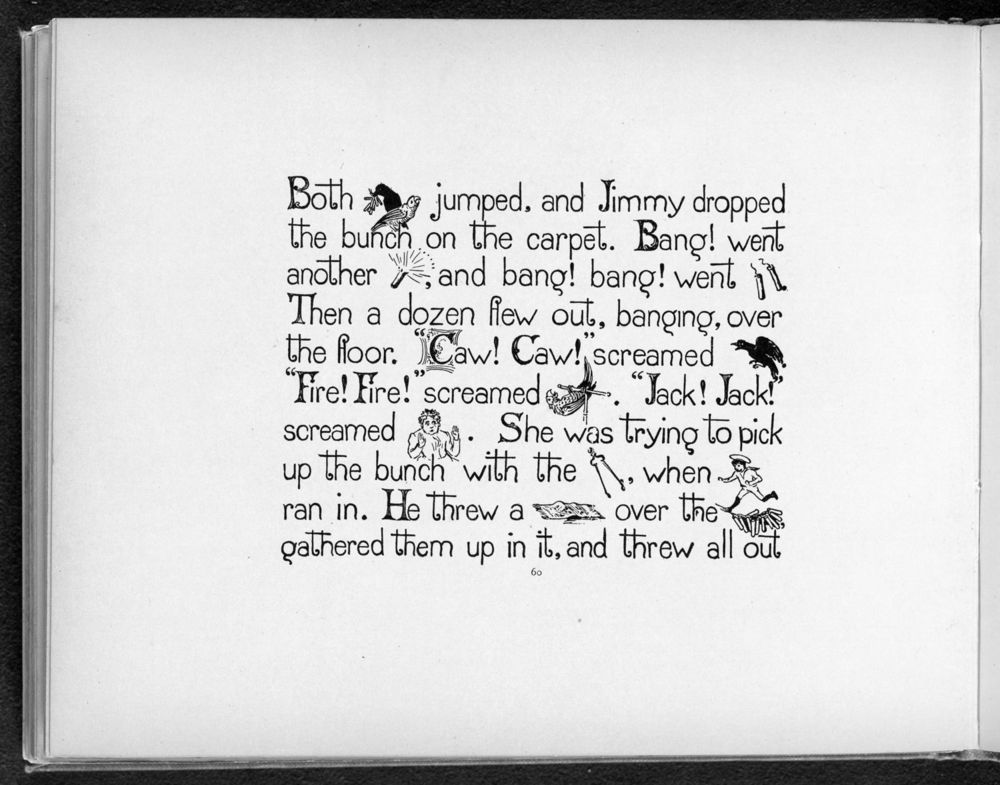 Both jumped, and Jimmy dropped
the bunch on the carpet. Bang! went
another , and bang! bang! went
Then a dozen flew out, banging, over
the floor. "Caw! Caw!" screamed
"Fire! Fire!" screamed . "Jack! Jack!"
screamed . She was trying to pick
up the bunch with the , when
ran in. He threw a over the
gathered them up in it, and threw all out
60